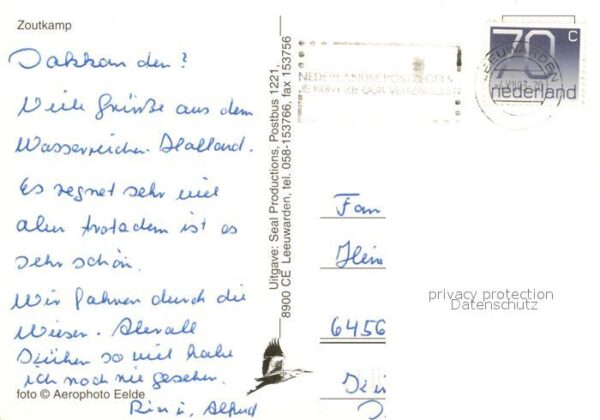 Zoutkamp
den?
Viele Grüße aus dem
Wasserreichen Holland.
Es regnet sehr viel
aber trotzdem ist es
sehr schön.
Wir fahren durch die
Wiesen. Überall
so viel habe
ich noch nie gesehen.
foto © Aerophoto Eelde
u. Alfred
Uitgave: Seal Productions, Postbus 1221,
8900 CE Leeuwarden, tel. 058-153766, fax 153756
NEDERLANDSE POSTZEGELS
JE KUNT ZE OOK VERZAMELEN
LEEUWARDEN
70 c
nederland
Fam
6456
privacy protection
Datenschutz